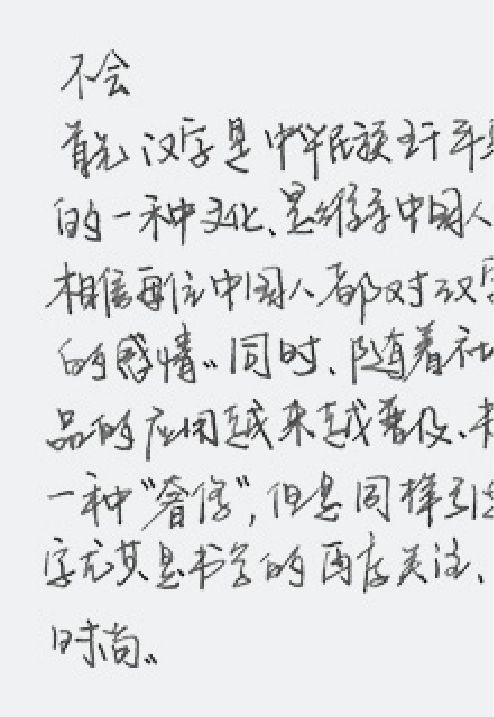 不会
首先汉字是中华民族五千年
的一种文化、是维系中国人
相信每位中国人都对汉字
的感情。同时、随着社
品的应用越来越普及、书
一种“奢侈”，但是同样引
字尤其是书写的再存关注、
时尚。